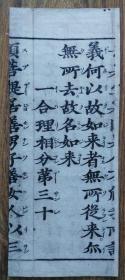 義何以故如来者無所從来亦
無所去故名如来
一合理相分第三十
須菩提若善男子善女人以三